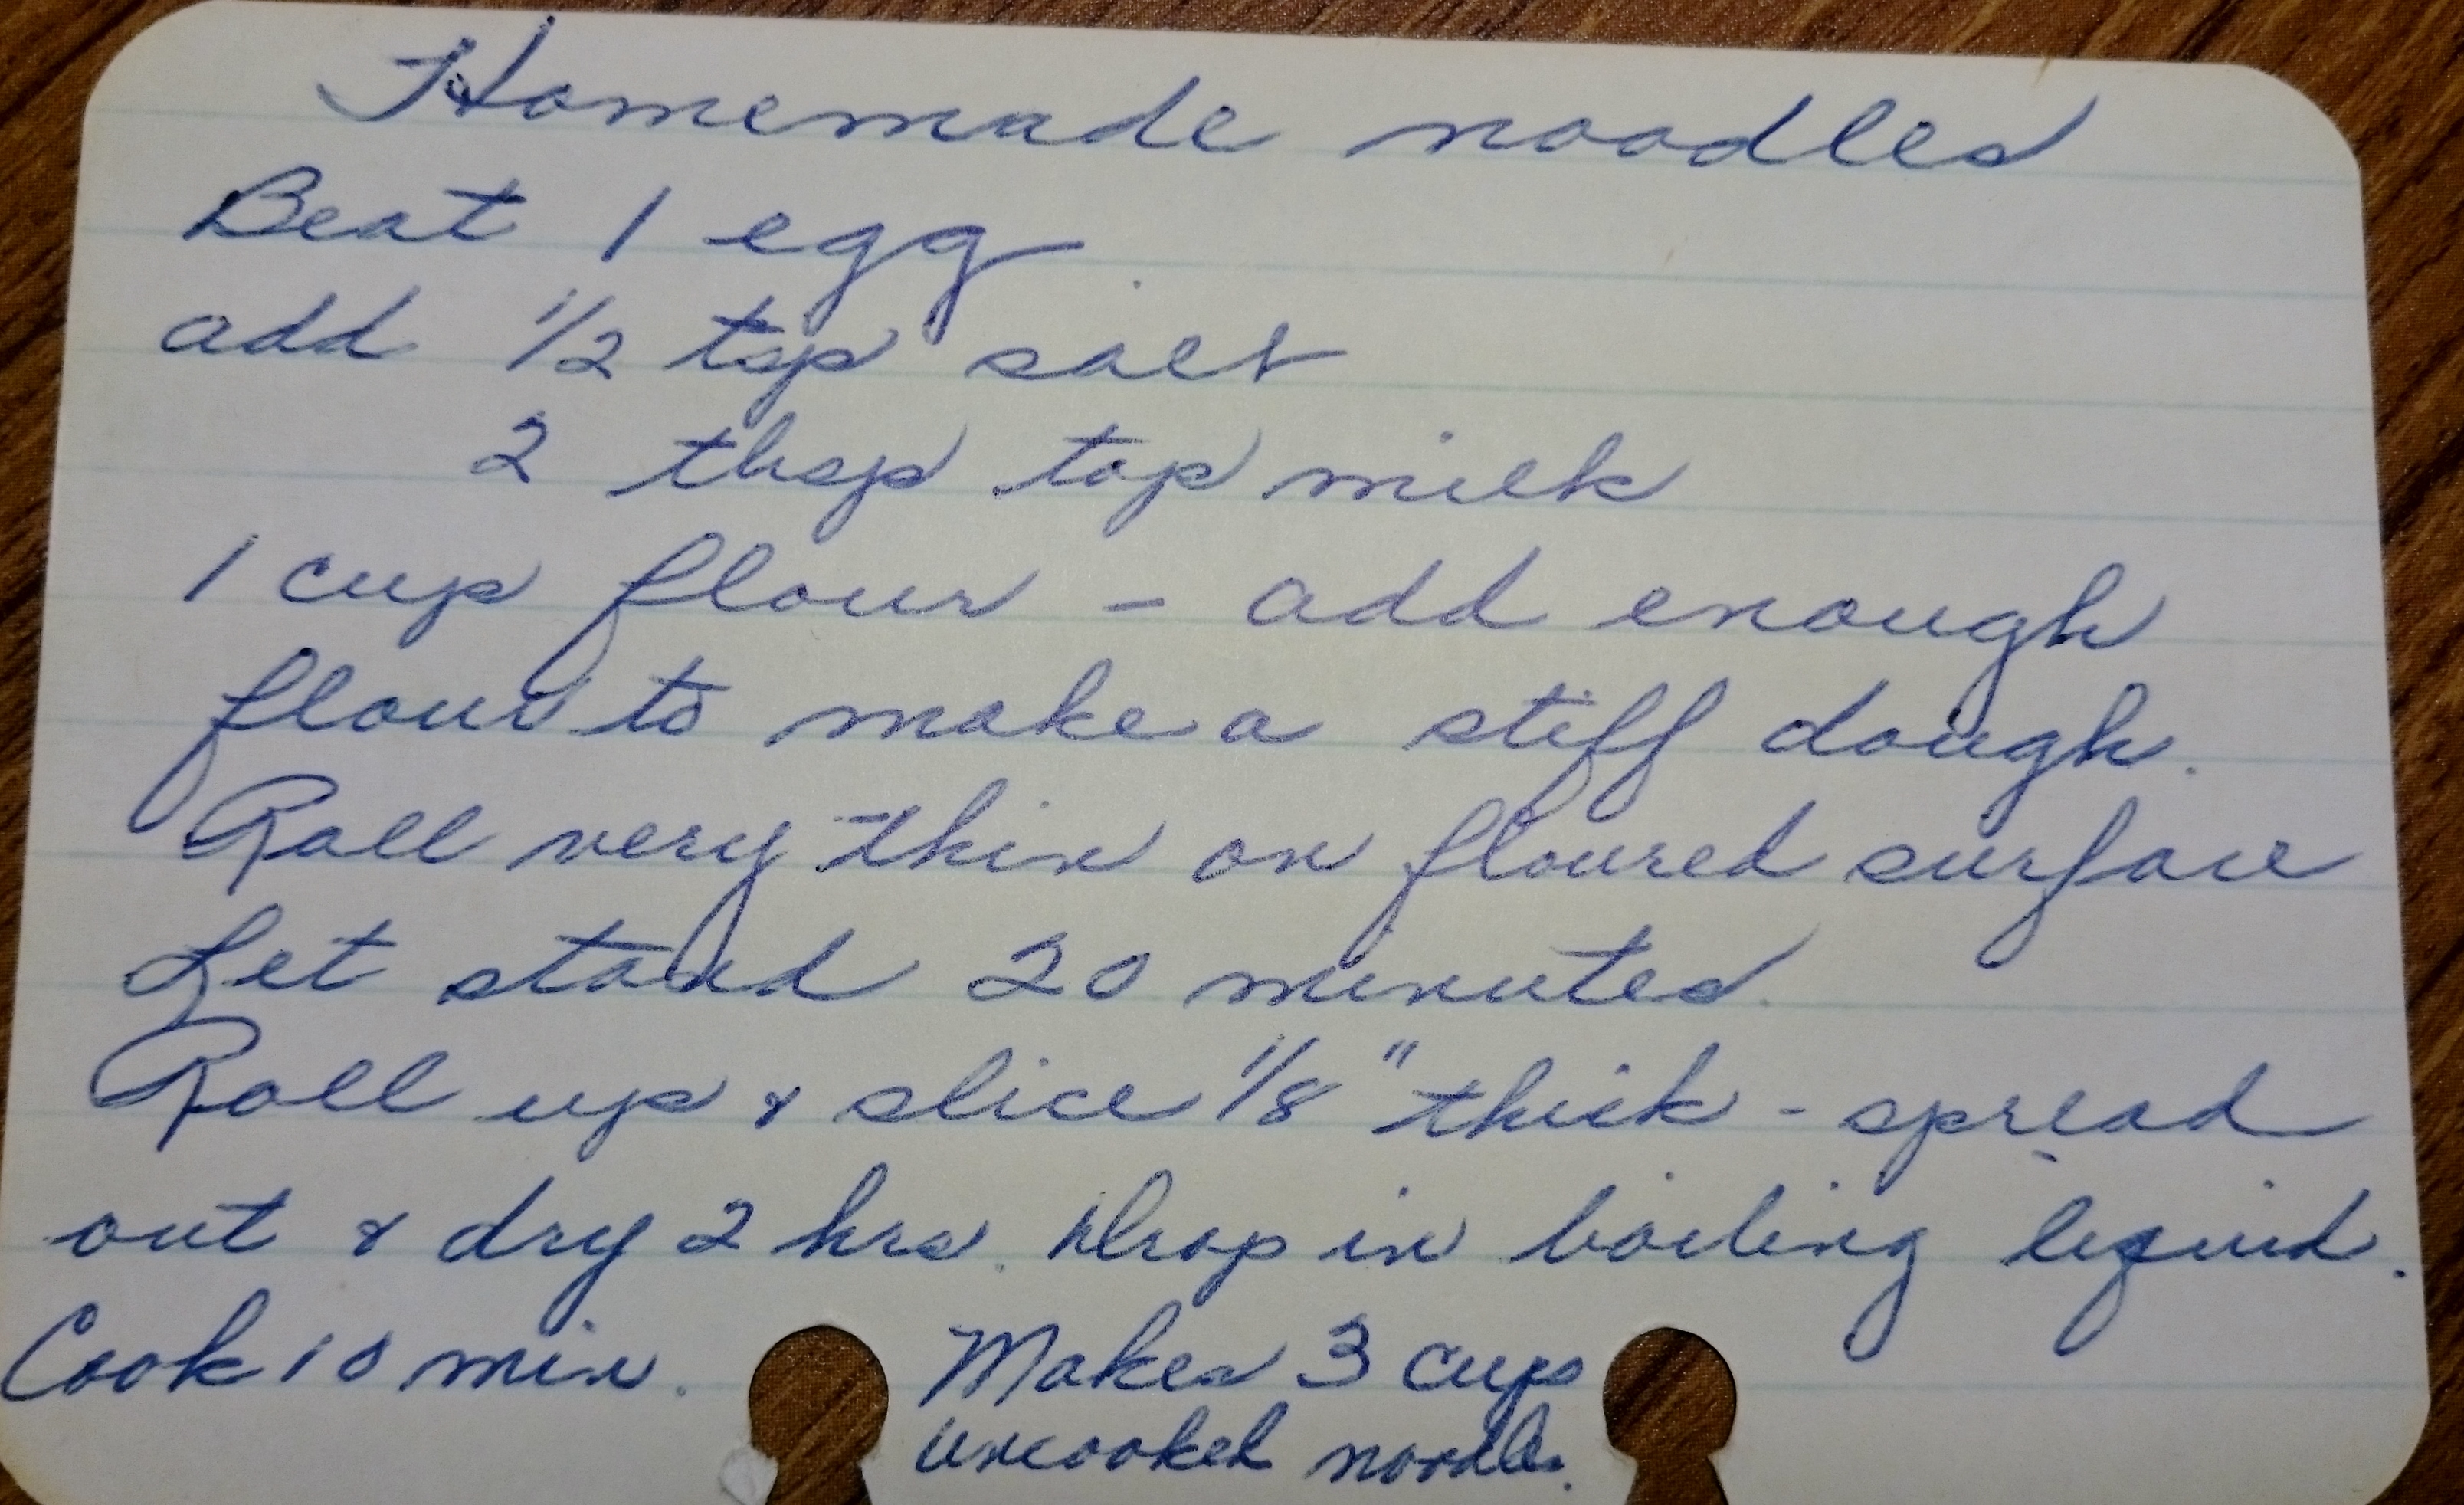 Homemade noodles
Beat 1 egg
add 1/2 tsp salt
2 tbsp top milk
1 cup flour - add enough
flour to make a stiff dough.
Roll very thin on floured surface
Let stand 20 minutes.
Roll up & slice 1/8" thick - spread
out & dry 2 hrs. Drop in boiling liquid.
Cook 10 min. Makes 3 cups
uncooked noodles.